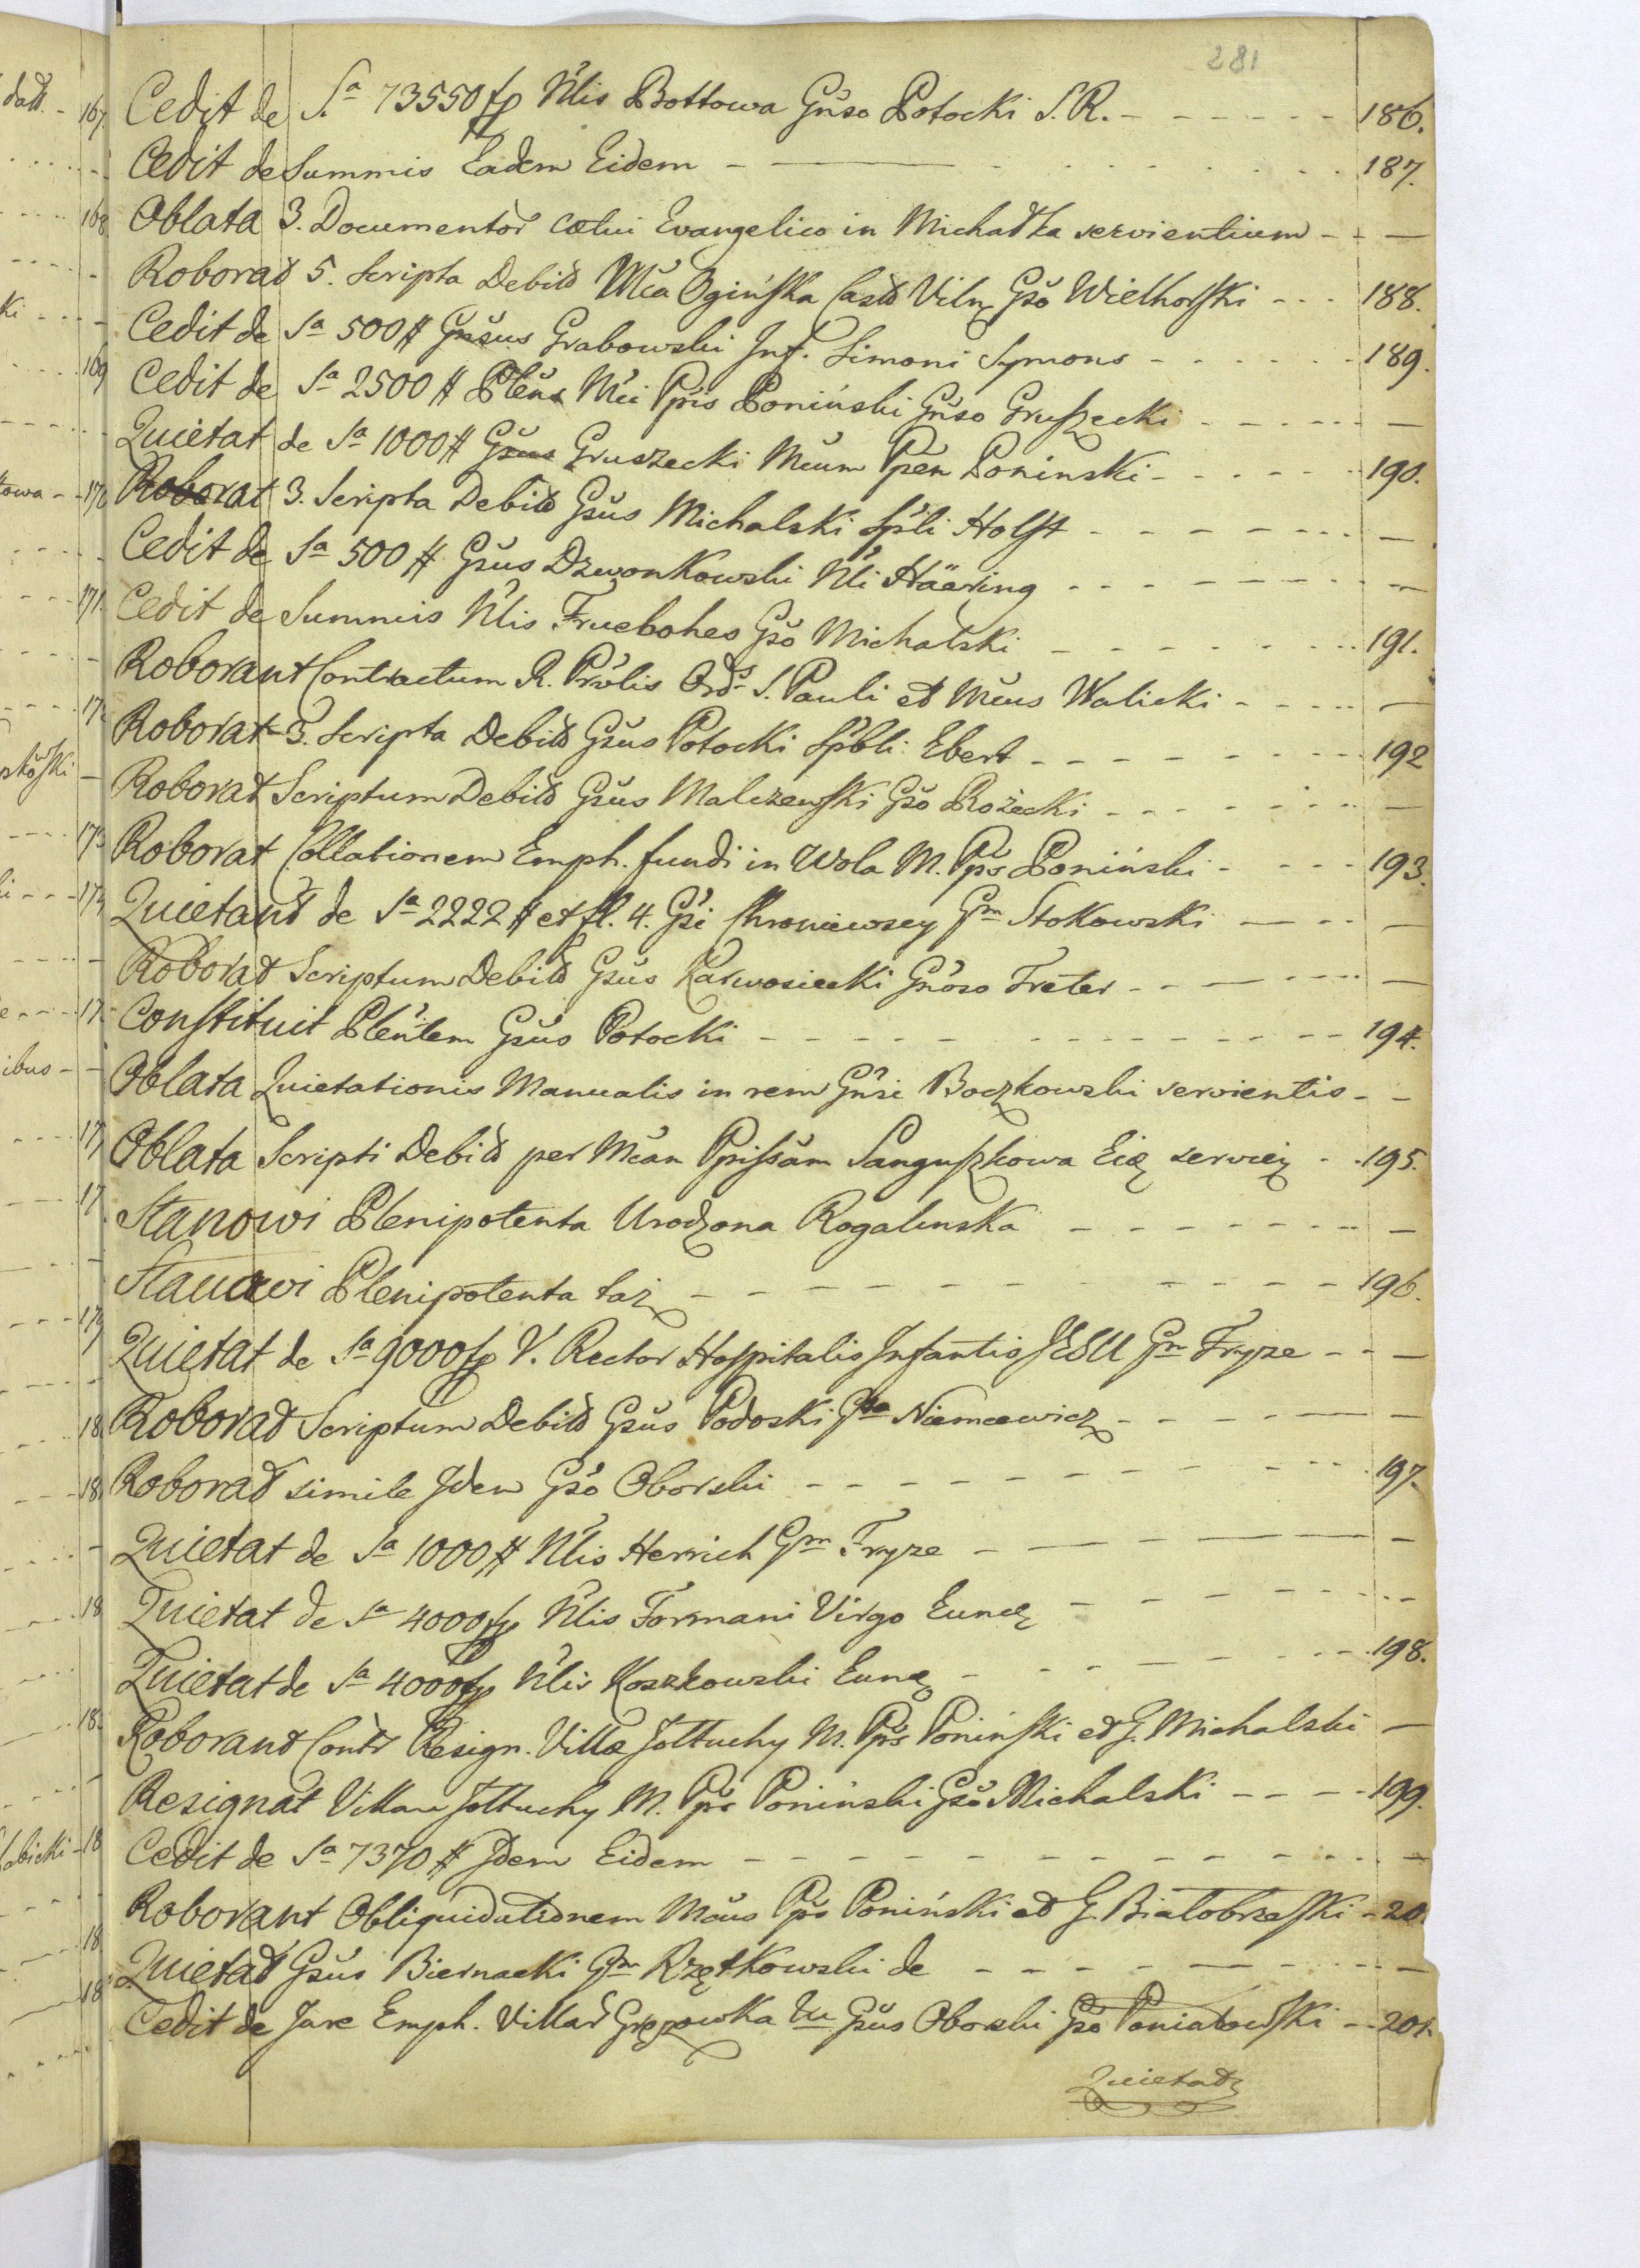 281
Cedit de Sa 73550 fp Nlis Bottowa Gnso Potocki S. R. - - - - - - 186.
Cedit de Summis Eadem Eidem - - - - - 187.
Oblata 3. Documentor Cœtui Evangelico in Michałka servientium - - -
Roborat 5. Scripta Debiti Mca Ogińska Castd Viln Gso Wielhorski - - - 188.
Cedit de Sa 500 # Gnsus Grabowski Inf. Simoni Symons - - - - - - 189.
Cedit de Sa 2500 # Plens Mci Ppis Poniński Gnso Gruszecki - - - - - -
Quietat de Sa 1000 # Gsus Gruszecki Mcum Ppen Poninski - - - - - 190.
Roborat 3. Scripta Debiti Gsus Michalski Spli Holst - - - - - - -
Cedit de Sa 500 # Gsus Dzwonkowski Nli Häering - - - - - - -
Cedit de Summis Nlis Fruebohes Gso Michalski - - - - - - - 191.
Roborant Contractum R. Prolis Ords S. Pauli et Mcus Walicki - - - - -
Roborat 3. Scripta Debiti Gsus Potocki Spbli Ebert - - - - - - - 192
Roborat Scriptum Debiti Gsus Malczewski Gso Rożecki - - - - - - -
Roborat Collationem Emph. fundi in Wola M. Pps Poniński - - - - 193.
Quietant de Sa 2222 # et fl. 4. Gsi Chroniewscy Gm Stokowski - - - -
Roborat Scriptum Debiti Gsus Karwosiecki Gnoso Freter - - - - - -
Constituit Plentem Gsus Potocki - - - - - - - - - - - 194.
Oblata Quietationis Manualis in rem Gnsi Boczkowski servientis - -
Oblata Scripti Debiti per Mcam Ppissam Sanguszkowa Eiq serviez - - 195.
Stanowi Plenipotenta Urodzona Rogalinska - - - - - - - -
Stanowi Plenipotenta taż - - - - - - - - - - 196.
Quietat de Sa 9000 fp V. Rector Hospitalis Infantis JESU Gm Fryze - - -
Roborat Scriptum Debiti Gsus Podoski Gso Niemcewicz - - - - - -
Roborat simile Idem Gso Oborski - - - - - - - - - - 197.
Quietat de Sa 1000 # Nlis Herrich Gm Fryze - - - - - -
Quietat de Sa 4000 fp Nlis Formani Virgo Eund - - - - - - -
Quietat de Sa 4000 fp Nlis Koszkowski Eund - - - - - - - 198.
Roborant Contr Resign. Villæ Jottuchy M. Pps Poninski et G. Michalski -
Resignat Villam Jottuchy M. Pps Poninski Gso Michalski - - - - 199.
Cedit de Sa 7370 # Idem Eidem - - - - - - - - - - -
Roborant Obliquidationem Mcus Pps Poniński et G. Białobrzeski - 20
Quietat Gsus Biernacki Gm Rzętkowski de - - - - - - - -
Cedit de Jure Emph. Villar Gsus Oborski Gso Poniatowski - - 201.
Quietat